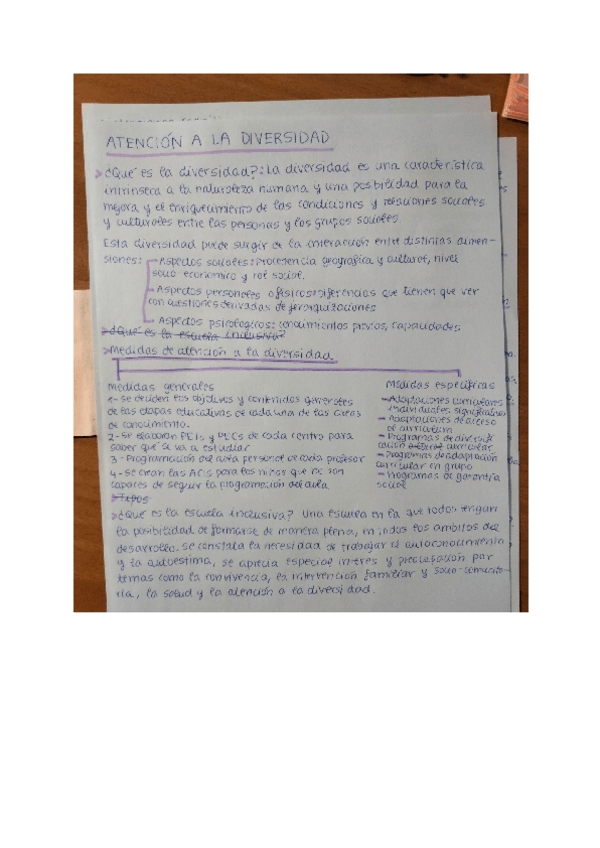 ATENCIÓN A LA DIVERSIDAD
¿Qué es la diversidad?: La diversidad es una característica
intrínseca a la naturaleza humana y una posibilidad para la
mejora y el enriquecimiento de las condiciones y relaciones sociales
y culturales entre las personas y los grupos sociales.
Esta diversidad puede surgir de la interacción entre distintas dimen-
siones:
- Aspectos sociales: Procedencia geográfica y cultural, nivel
socio económico y rol social.
- Aspectos personales o físicos: diferencias que tienen que ver
con cuestiones derivadas de jerarquizaciones
- Aspectos psicológicos: conocimientos previos, capacidades
¿Qué es la escuela inclusiva?
Medidas de atención a la diversidad
Medidas generales
1- Se deciden los objetivos y contenidos generales
de las etapas educativas de cada una de las áreas
de conocimiento.
2- Se elaboran PEIs y PECs de cada centro para
saber qué se va a estudiar
3- Programación del aula personal de cada profesor
4- Se crean las ACIs para los niños que no son
capaces de seguir la programación del aula
Medidas específicas
- Adaptaciones curriculares
individuales significativas
- Adaptaciones de acceso
al currículum
- Programas de diversifi
cación curricular
- Programas de adaptación
curricular en grupo
- Programas de garantía
social
Tipos
¿Qué es la escuela inclusiva? Una escuela en la que todos tengan
la posibilidad de formarse de manera plena, en todos los ámbitos del
desarrollo. Se constata la necesidad de trabajar el autoconocimiento
y la autoestima, se aprecia especial interés y preocupación por
temas como la convivencia, la intervención familiar y socio-comunita-
ria, la salud y la atención a la diversidad.